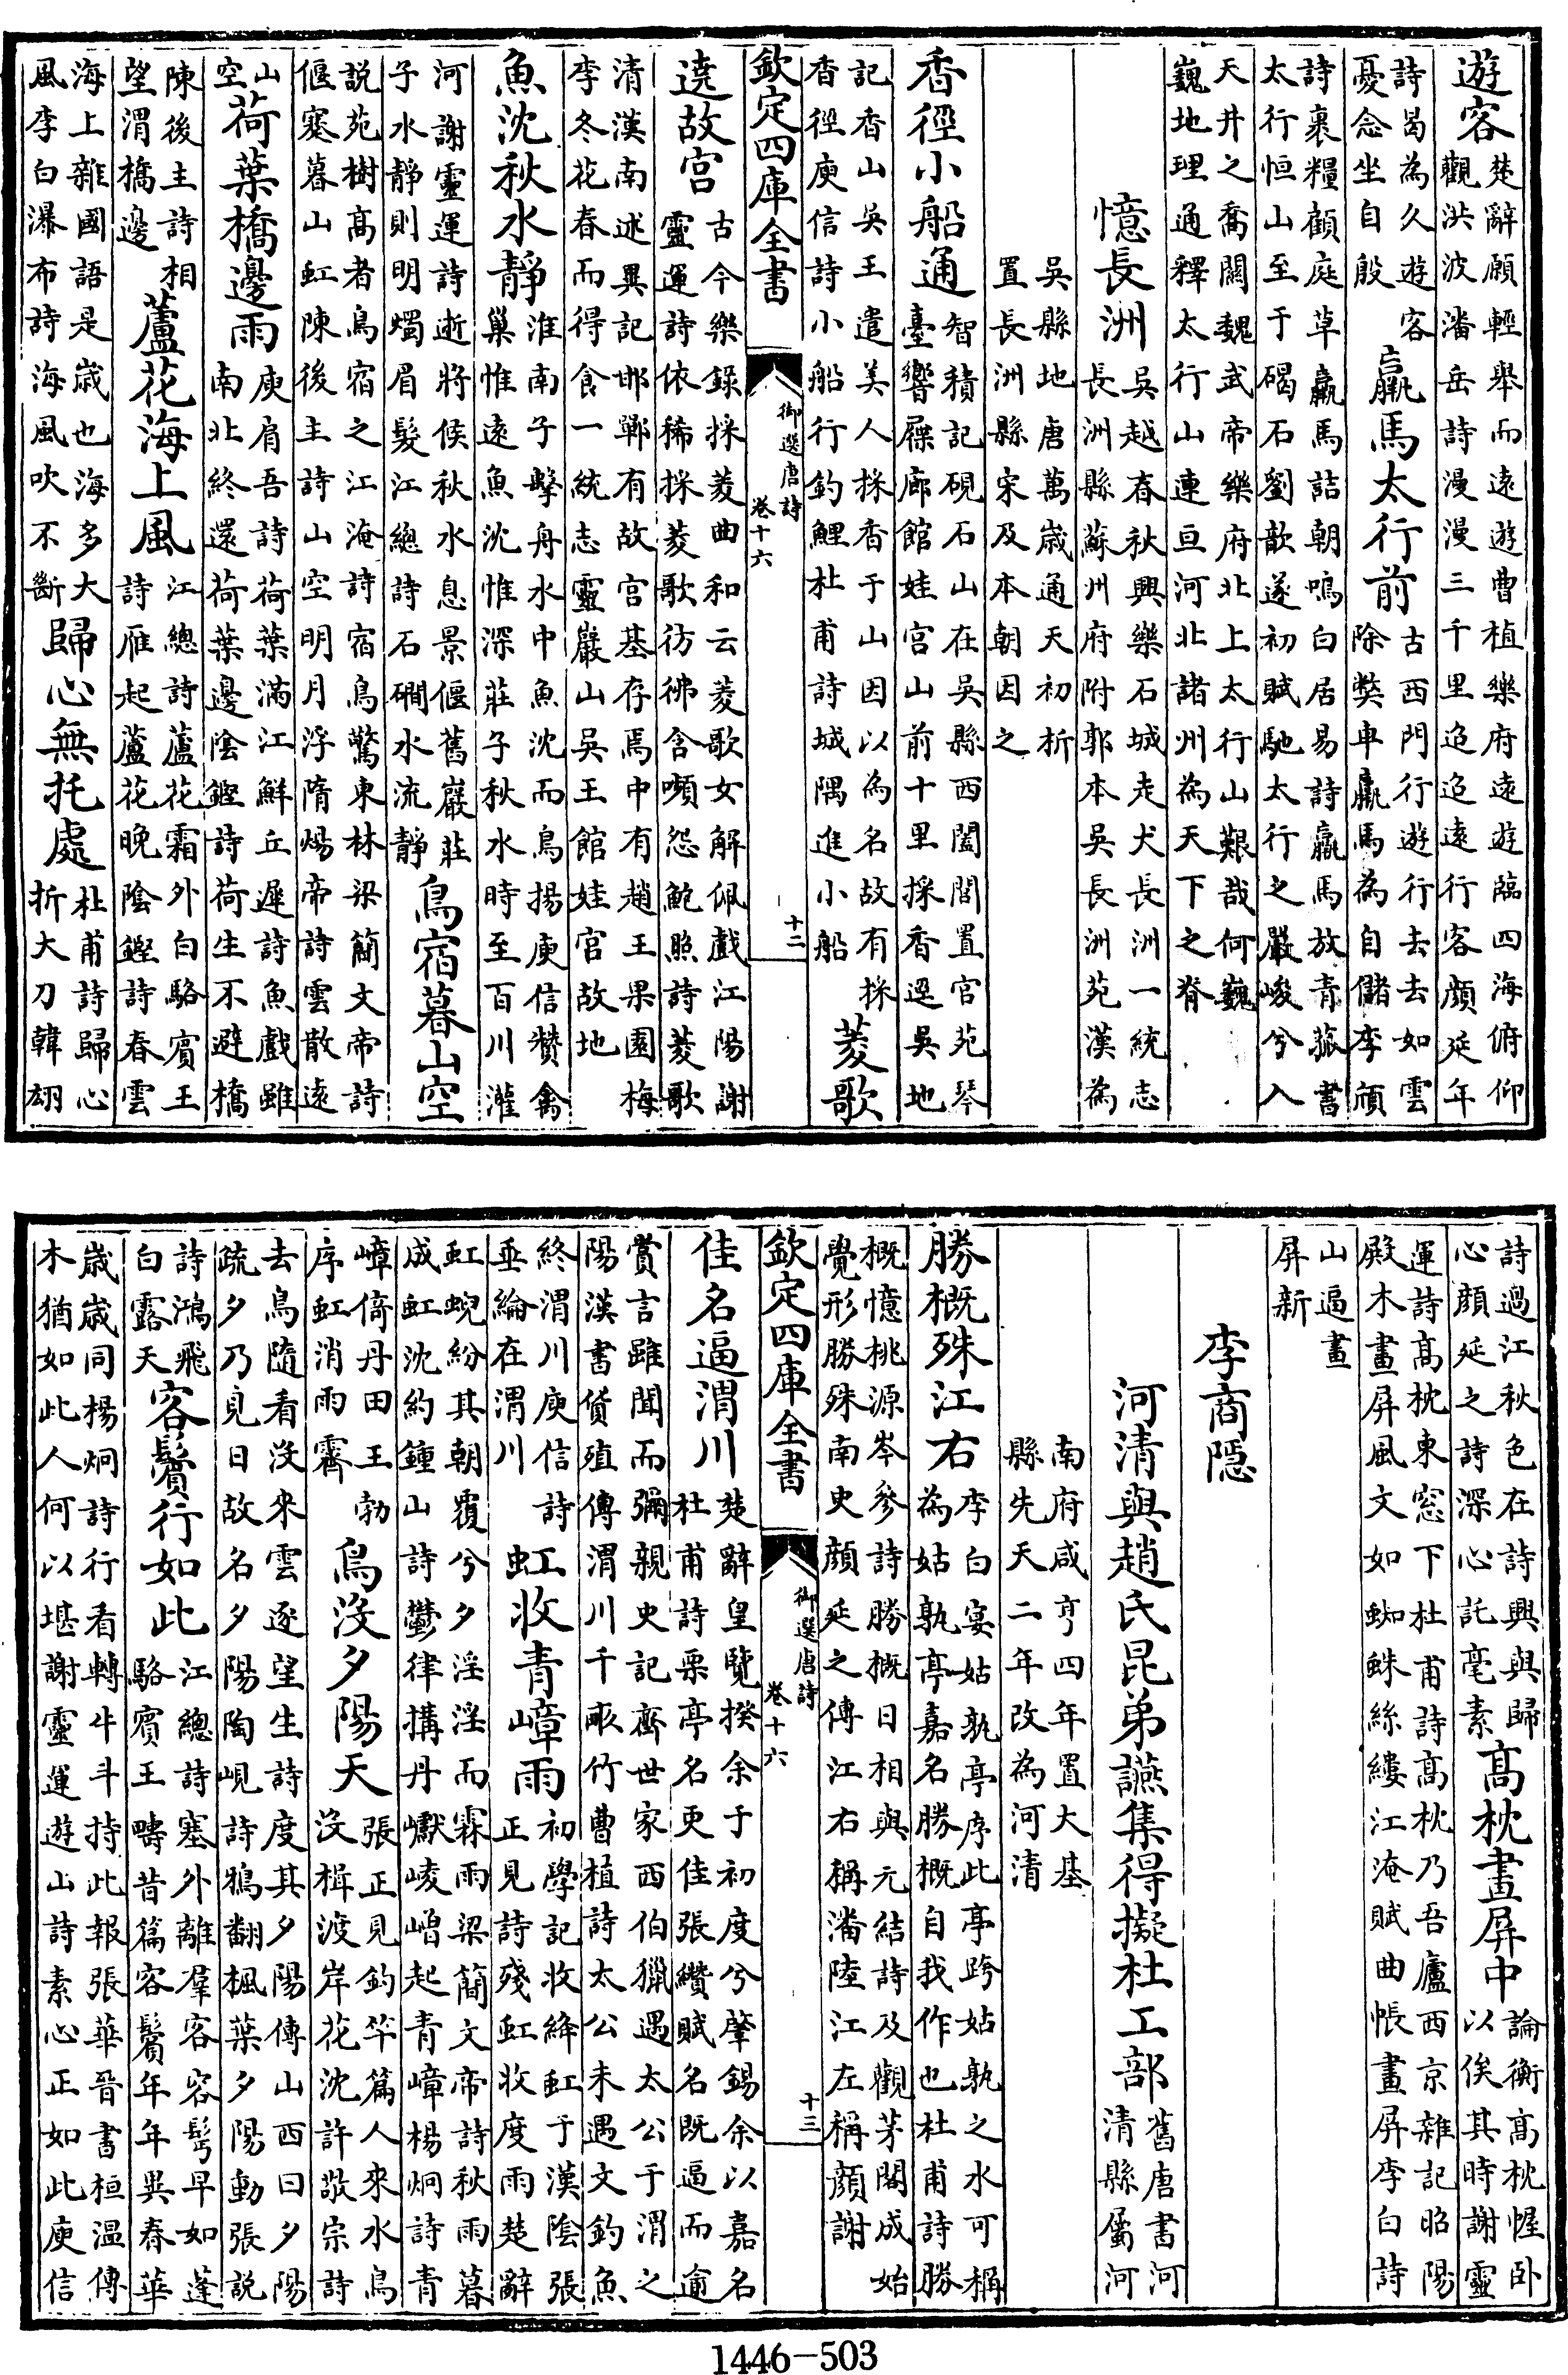 遊客
楚辭願輕舉而遠遊曹植樂府遠遊臨四海俯仰
觀洪波潘岳詩漫漫三千里迢迢遠行客顔延年
詩曷為久遊客
憂念坐自殷
羸馬太行前
古西門行遊行去去如雲
除獘車羸馬為自儲李頎
詩裹糧顧庭草羸馬詰朝鳴白居易詩羸馬放青菰書
太行恒山至于碣石劉歆遂初賦馳太行之嚴峻兮入
天井之喬關魏武帝樂府北上太行山艱哉何巍
巍地理通釋太行山連亘河北諸州為天下之脊
憶長洲
吳越春秋興樂石城走犬長洲一統志
長洲縣蘇州府附郭本吳長洲苑漢為
吳縣地唐萬歳通天初析
置長洲縣宋及本朝因之
香徑小船通
智積記硯石山在吳縣西闔閭置宫苑琴
臺響屧廊館娃宫山前十里採香逕吳地
記香山吳王遣美人採香于山因以為名故有採
香徑庾信詩小船行釣鯉杜甫詩城隅進小船
菱歌
欽定四庫全書
御選唐詩
卷十六
十二
遶故宫
古今樂錄採菱曲和云菱歌女解佩戲江陽謝
靈運詩依稀採菱歌彷彿含嚬怨鮑照詩菱歌
清漢南述異記邯鄲有故宫基存焉中有趙王果園梅
李冬花春而得食一統志靈巖山吳王館娃宫故地
魚沈秋水靜
淮南子擊舟水中魚沈而鳥揚庾信贊禽
巢惟遠魚沈惟深莊子秋水時至百川灌
河謝靈運詩逝將候秋水息景偃舊巖莊
子水靜則明燭眉髮江總詩石磵水流靜
鳥宿暮山空
説苑樹髙者鳥宿之江淹詩宿鳥驚東林梁簡文帝詩
偃蹇暮山虹陳後主詩山空明月浮隋煬帝詩雲散遠
山
空
荷葉橋邊雨
庾肩吾詩荷葉滿江鮮丘遲詩魚戲雖
南北終還荷葉邊陰鏗詩荷生不避橋
陳後主詩相
望渭橋邊
蘆花海上風
江總詩蘆花霜外白駱賓王
詩雁起蘆花晚陰鏗詩春雲
海上雜國語是歳也海多大
風李白瀑布詩海風吹不斷
歸心無托處
杜甫詩歸心
折大刀韓翃
詩過江秋色在詩興與歸
心顔延之詩深心託毫素
髙枕畫屏中
論衡髙枕幄卧
以俟其時謝靈
運詩髙枕東窓下杜甫詩髙枕乃吾廬西京雜記昭陽
殿木畫屏風文如蜘蛛絲縷江淹賦曲帳畫屏李白詩
山逼畫
屏新
李商隠
河清與趙氏昆弟讌集得擬杜工部
舊唐書河
清縣屬河
南府咸亨四年置大基
縣先天二年改為河清
勝概殊江右
李白宴姑孰亭序此亭跨姑孰之水可稱
為姑孰亭嘉名勝概自我作也杜甫詩勝
概憶桃源岑參詩勝概日相與元結詩及觀茅閣成始
覺形勝殊南史顔延之傳江右稱潘陸江左稱顔謝
欽定四庫全書
御選唐詩
卷十六
十三
佳名逼渭川
楚辭皇覽揆余于初度兮肇錫余以嘉名
杜甫詩栗亭名更佳張纘賦名既逼而逾
賞言雖聞而彌親史記齊世家西伯獵遇太公于渭之
陽漢書貨殖傳渭川千畞竹曹植詩太公未遇文釣魚
終渭川庾信詩
垂綸在渭川
虹收青嶂雨
初學記收絳虹于漢陰張
正見詩殘虹收度雨楚辭
虹蜺紛其朝覆兮夕淫淫而霖雨梁簡文帝詩秋雨暮
成虹沈約鍾山詩鬱律搆丹巘崚嶒起青嶂楊炯詩青
嶂倚丹田王勃
序虹消雨霽
鳥没夕陽天
張正見釣竿篇人來水鳥
没楫渡岸花沈許敬宗詩
去鳥隨看没來雲逐望生詩度其夕陽傳山西曰夕陽
疏夕乃見日故名夕陽陶峴詩鴉翻楓葉夕陽動張説
詩鴻飛
白露天
客鬢行如此
江總詩塞外離羣客容髩早如蓬
駱賓王疇昔篇容鬢年年異春華
歳歳同楊炯詩行看轉斗牛持此報張華晉書桓温傳
木猶如此人何以堪謝靈運遊山詩素心正如此庾信
1446-503